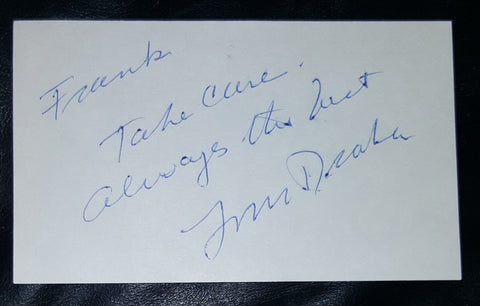 Frank
Take care.
Always the best
Tom Drake